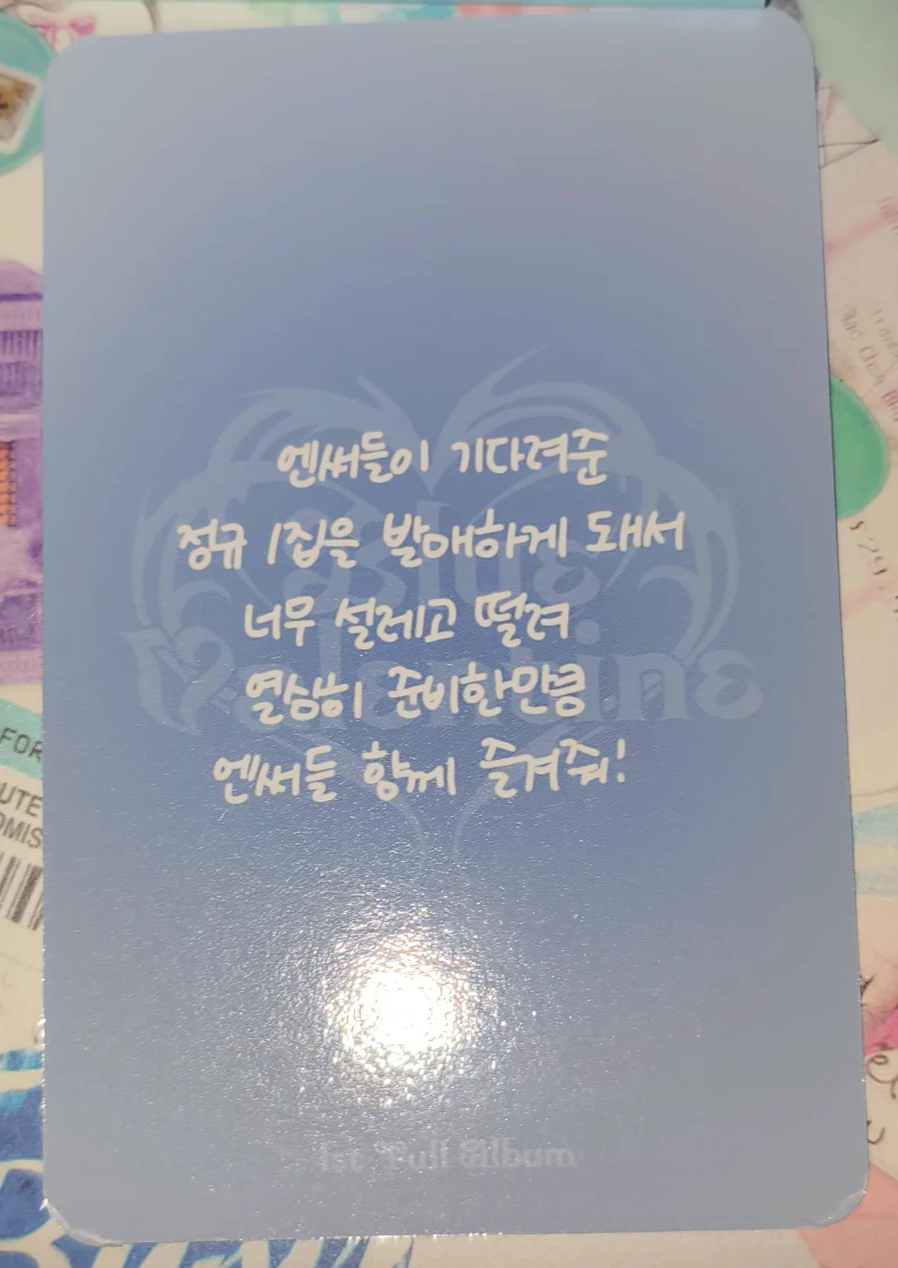 엔써들이 기다려준
정규 1집을 발매하게 돼서
너무 설레고 떨려
열심히 준비한만큼
엔써들 함께 즐겨줘!
Blue
Valentine
1st Full Album
FOR